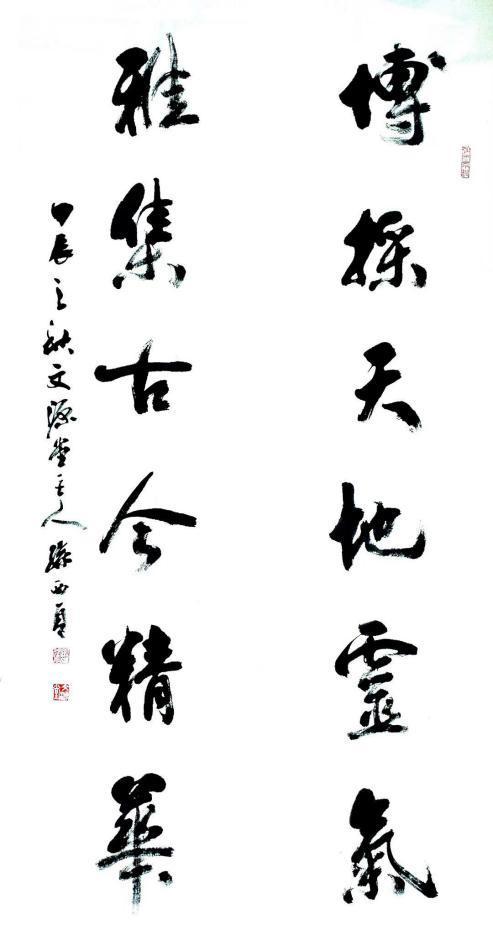 博採天地靈氣
雅集古今精華
甲辰之秋文源堂主人孫西